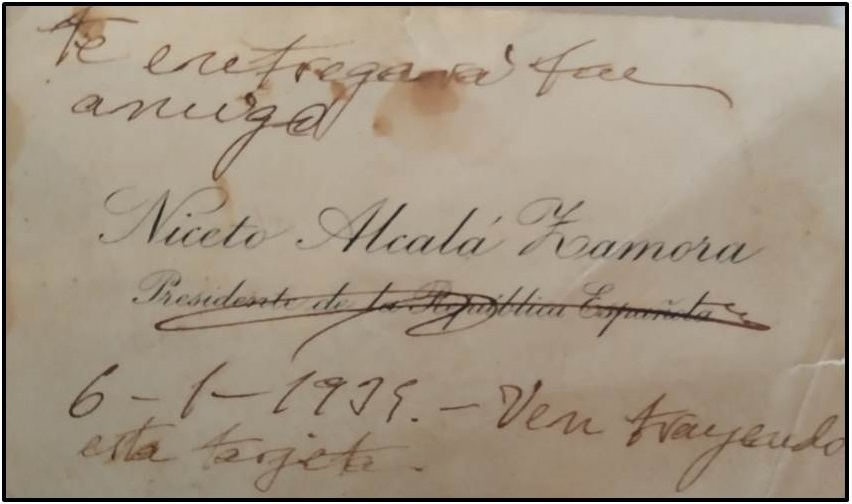 te entregará tu
amigo
Niceto Alcalá Zamora
Presidente de la República Española
6-1-1939.- Ven trayendo
esta tarjeta.